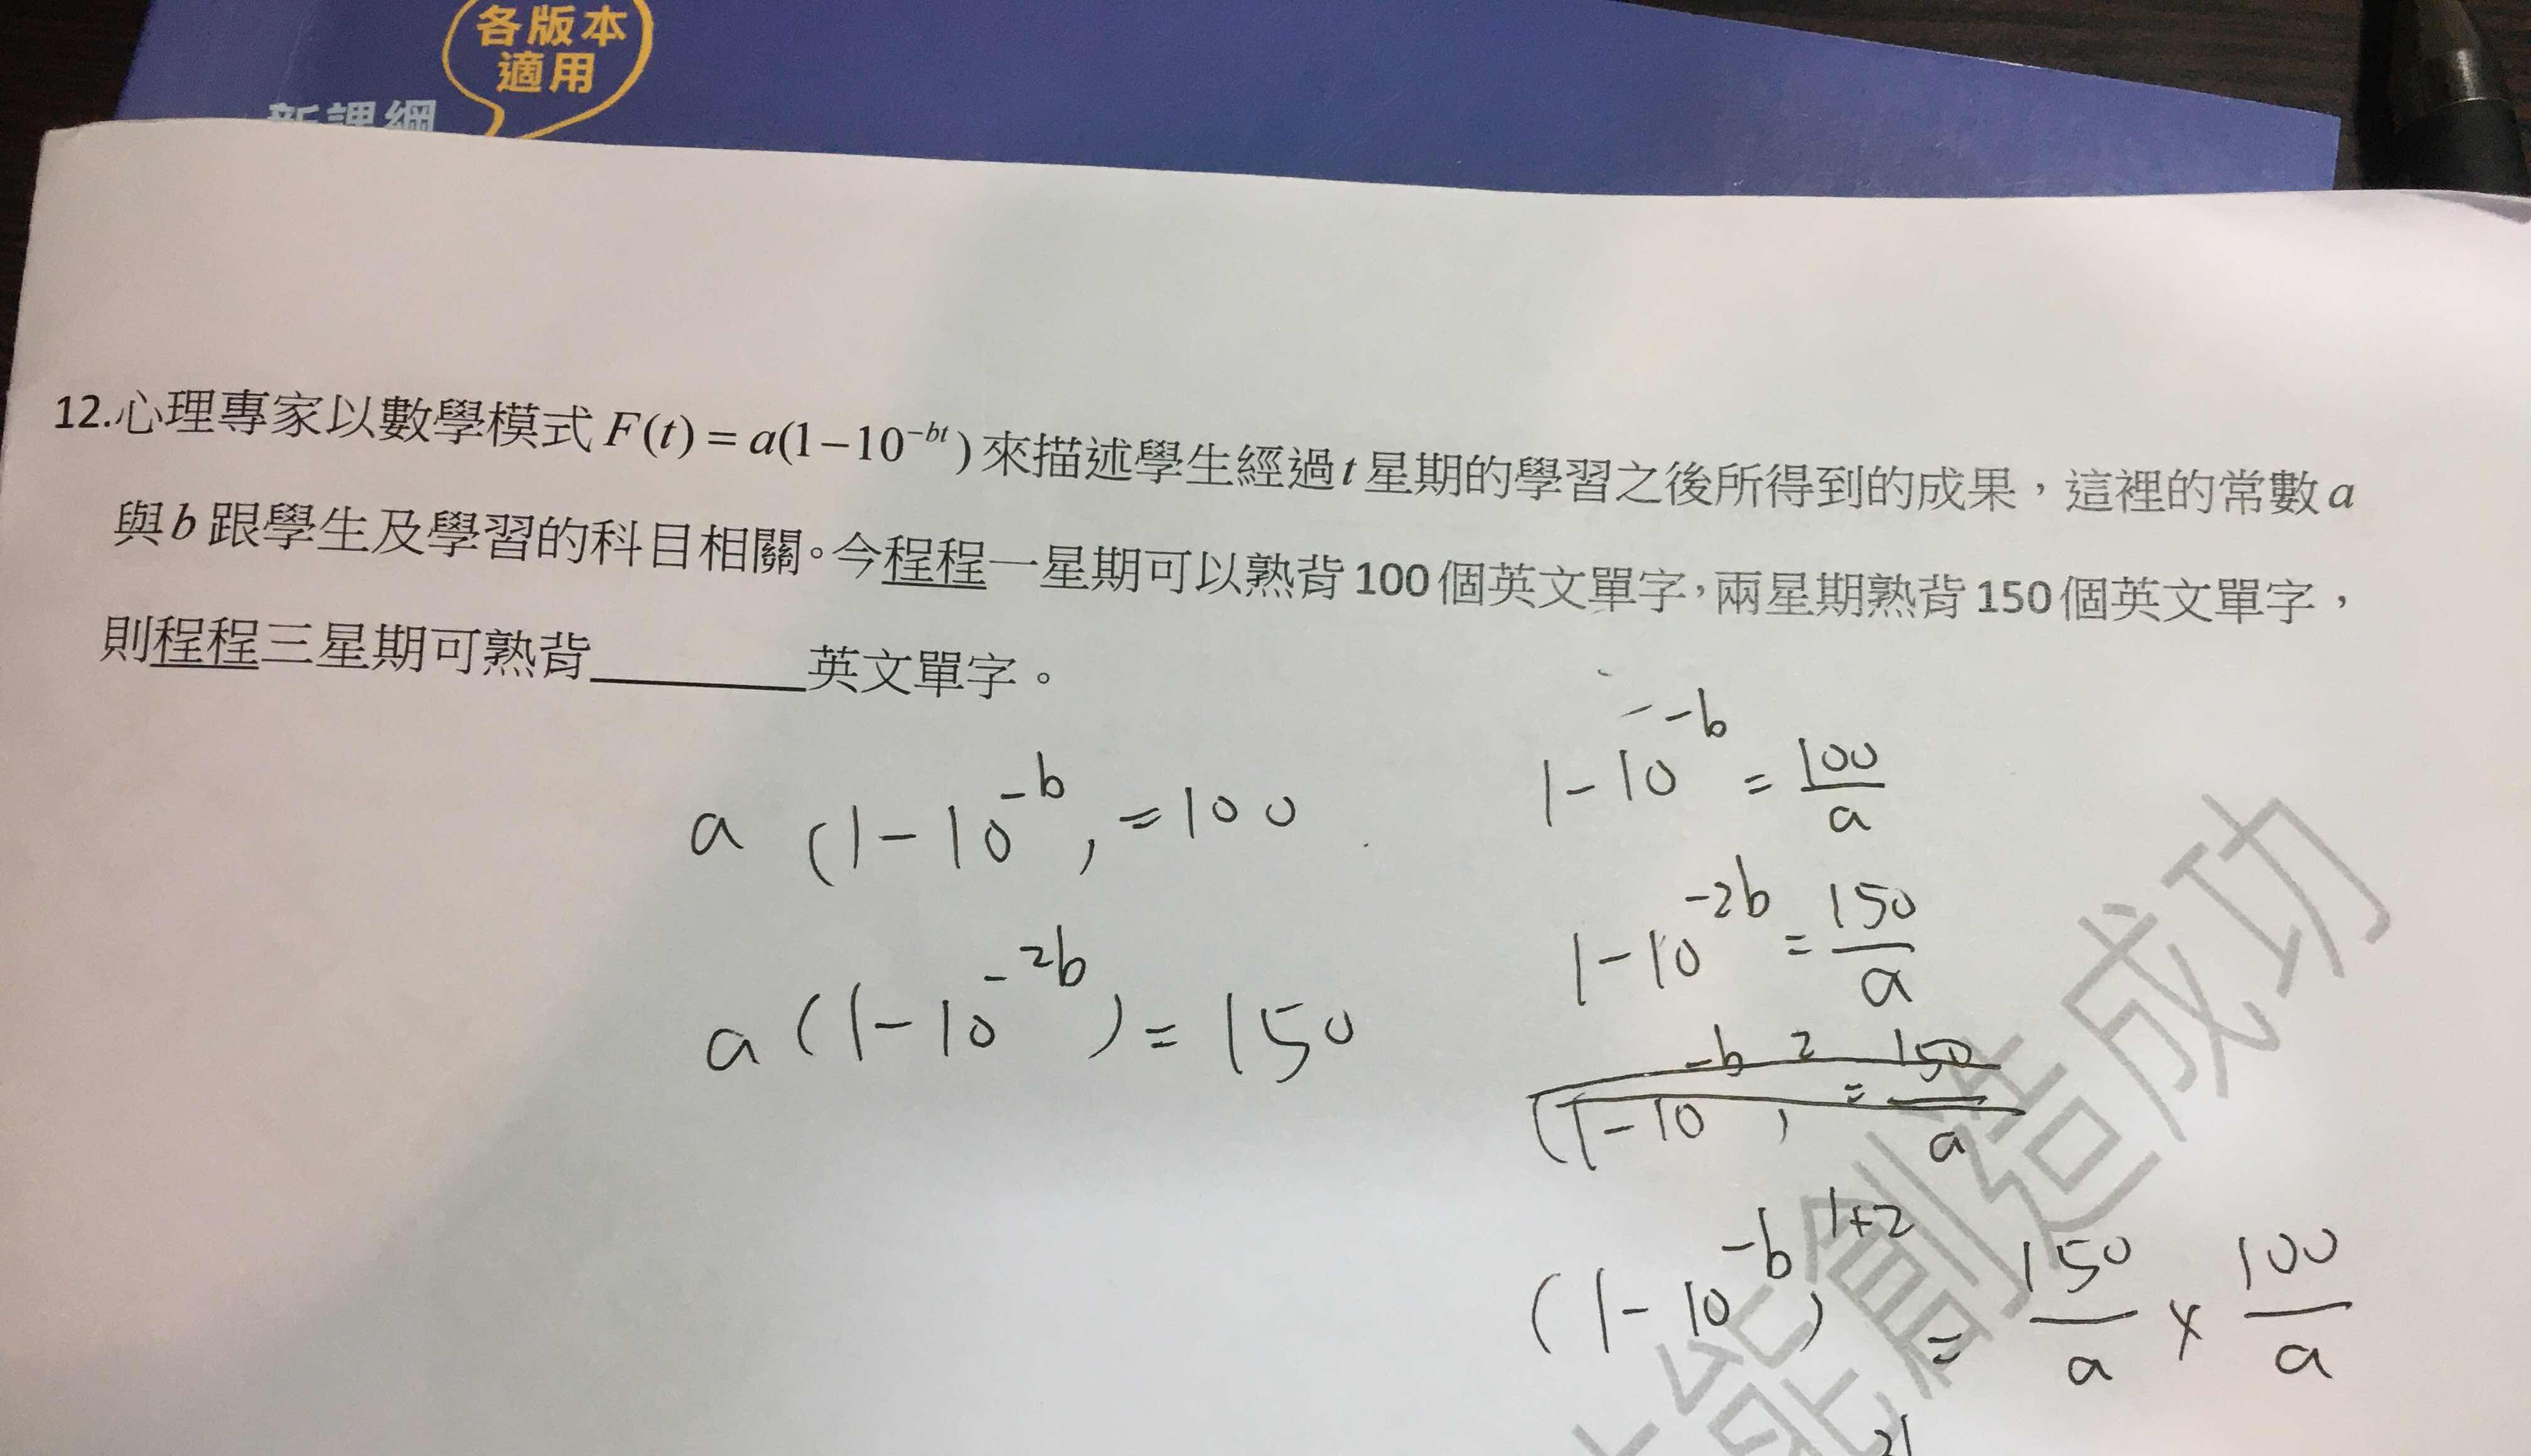 各版本
適用
新課綱
12.心理專家以數學模式 F(t) = a(1−10^{-bt}) 來描述學生經過 t 星期的學習之後所得到的成果，這裡的常數 a
與 b 跟學生及學習的科目相關。今程程一星期可以熟背 100 個英文單字，兩星期熟背 150 個英文單字，
則程程三星期可熟背________英文單字。
a (1−10^{-b}) = 100
a (1−10^{-2b}) = 150
1−10^{-b} = 100/a
1−10^{-2b} = 150/a
(1−10^{-b})^2 = 150/a
(1−10^{-b})^{1+2} = 150/a × 100/a
能創造成功